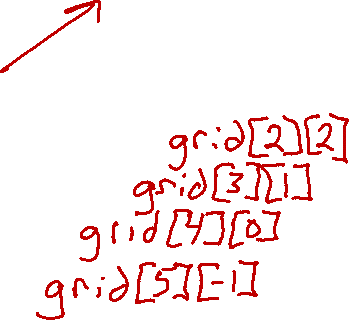 grid[2][2]
grid[3][1]
grid[4][0]
grid[5][-1]